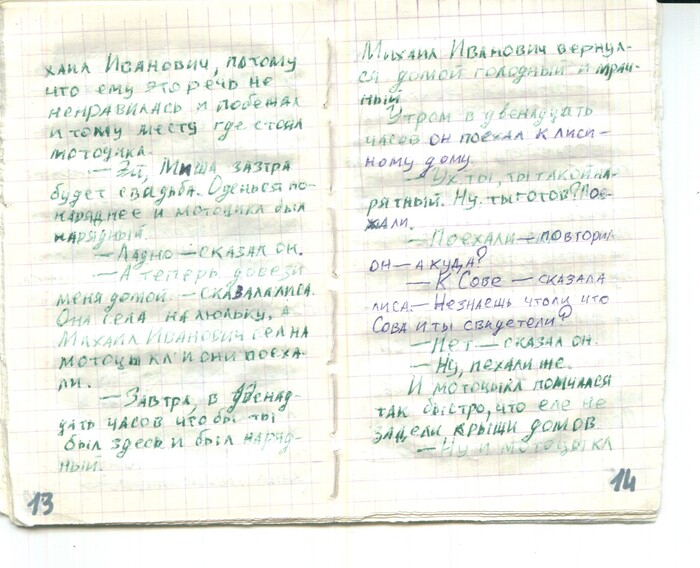 хаил Иванович, потому
что ему это речь не
ненравилась и побежал
и тому месту где стоял
мотоцикл.
— Эй, Миша завтра
будет свадьба. Оденься по-
наряднее и мотоцикл был
нарядный.
— Ладно — сказал он.
— А теперь довези
меня домой. — сказала лиса.
Она села на люльку, а
Михаил Иванович сел на
мотоцыкл и они поеха-
ли.
— Завтра, в двенад-
цать часов чтобы ты
был здесь и был наряд-
ный.
13
Михаил Иванович вернул-
ся домой голодный и мрач-
ный.
Утром в двенадцать
часов он поехал к лиси-
ному дому.
— Ух ты, ты такой на-
рятный. Ну, ты готов? Пое-
хали.
— Поехали — повторил
он — а куда?
— К Сове — сказала
лиса. — Незнаешь чтоли что
Сова и ты свидетели?
— Нет — сказал он.
— Ну, пехали же.
И мотоцыкл помчался
так быстро, что еле не
задели крыши домов
— Ну и мотоцыкл
14